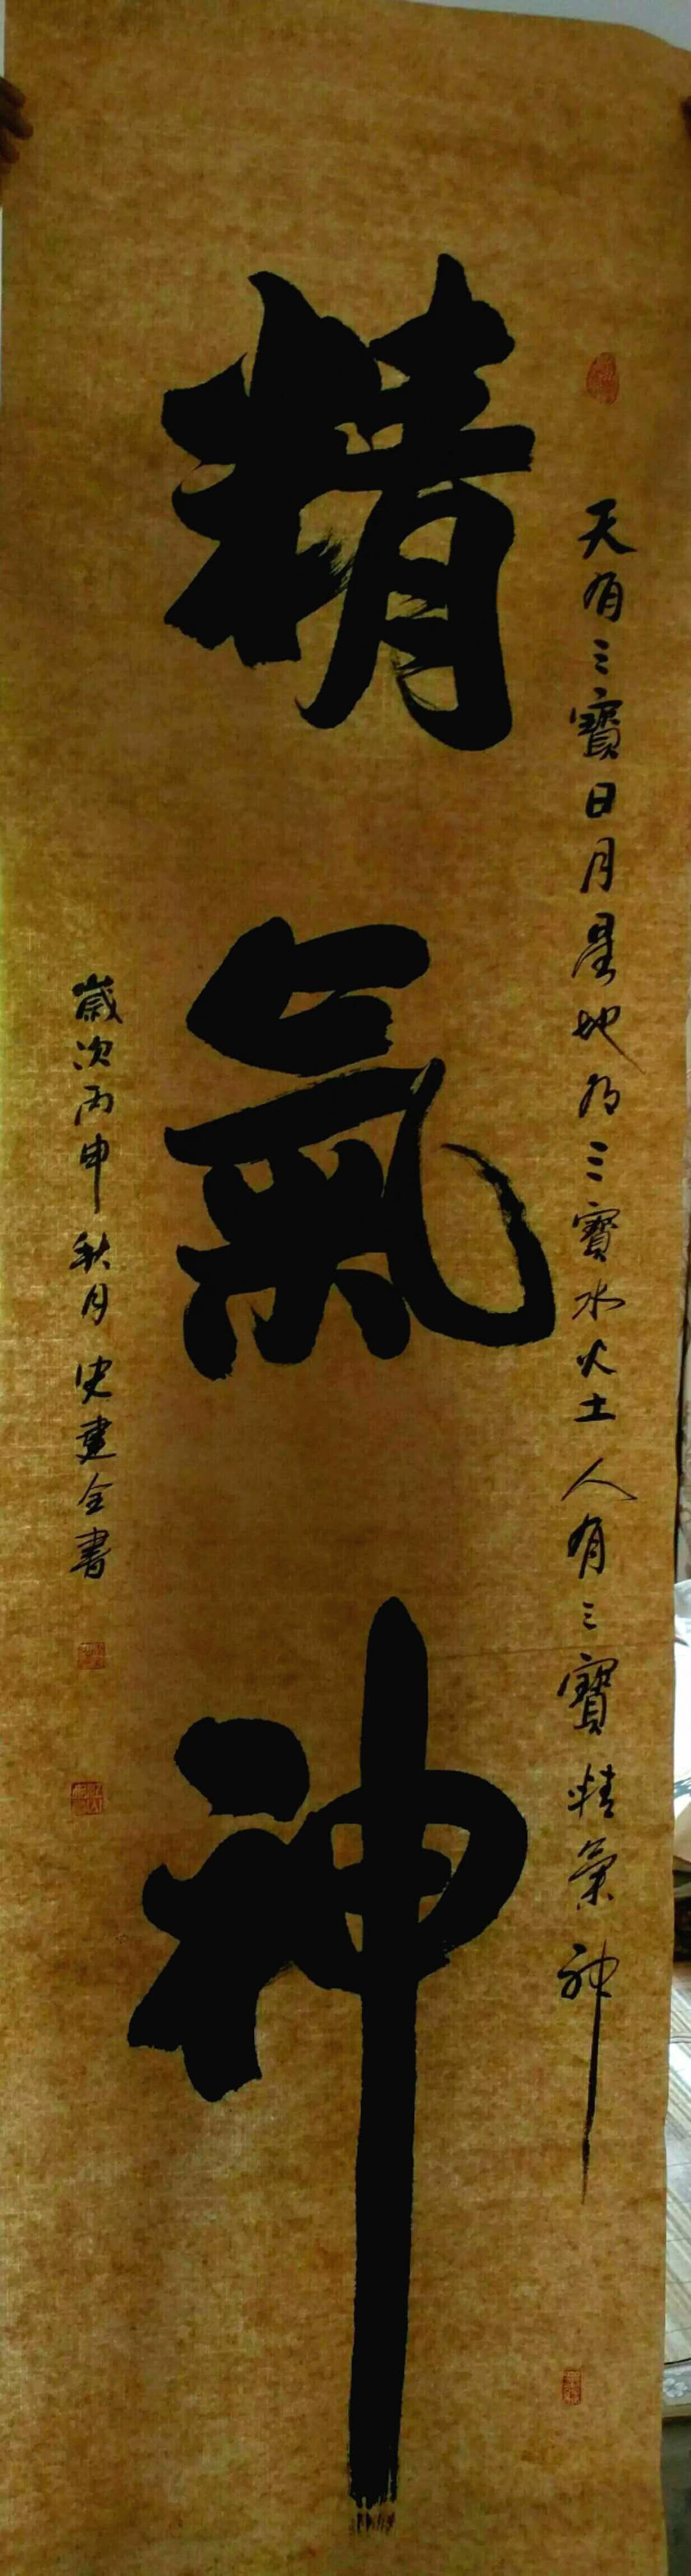 天有三寶日月星地有三寶水火土人有三寶精氣神
精氣神
歲次丙申秋月史建全書